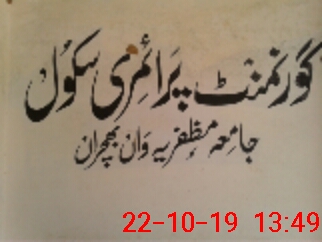 گورنمنٹ پرائمری سکول
جامعہ مظفریہ وان بھچران
22-10-19 13:49